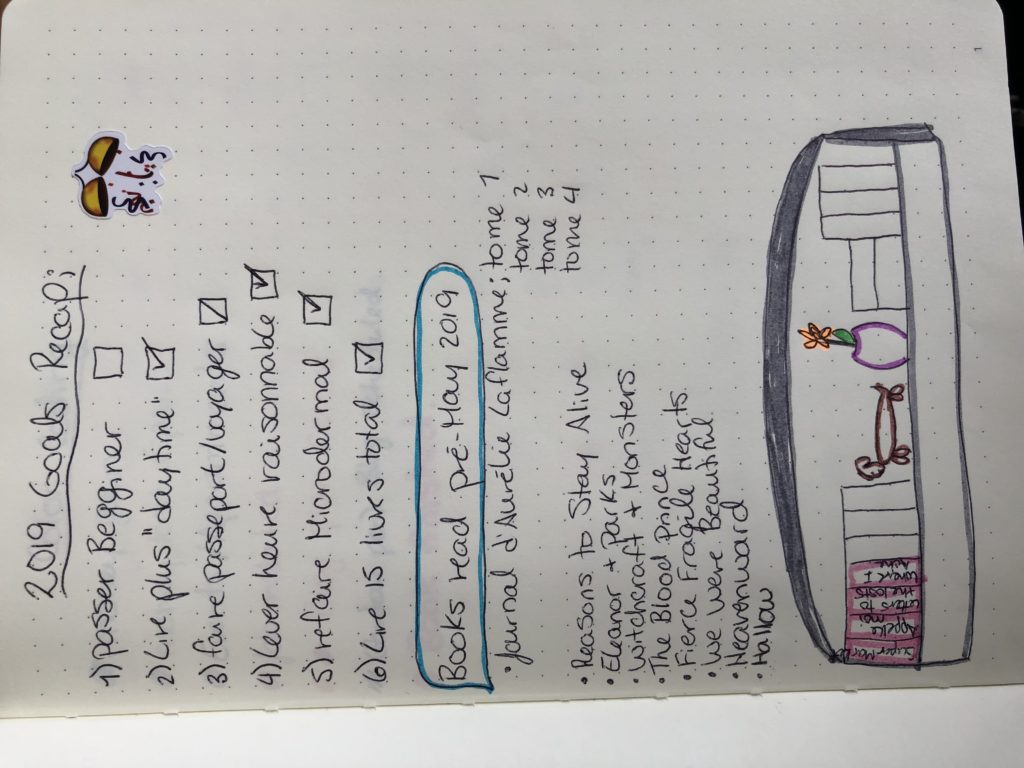 2019 Goals Recap;
1) passer Begginer
2) Lire plus "daytime"
3) faire passeport/voyager
4) lever heure raisonnable
5) refaire Microdermal
6) Lire 15 livres total
Books read pré-May 2019
• Journal d'Aurélie Laflamme; tome 1
tome 2
tome 3
tome 4
• Reasons to Stay Alive
• Eleanor + Parks
• Witchcraft + Monsters
• The Blood Prince
• Fierce Fragile Hearts
• We Were Beautiful
• Heavenward
• Hallow
Super Market
Appelle moi
Letters to
the losts
Where I
1